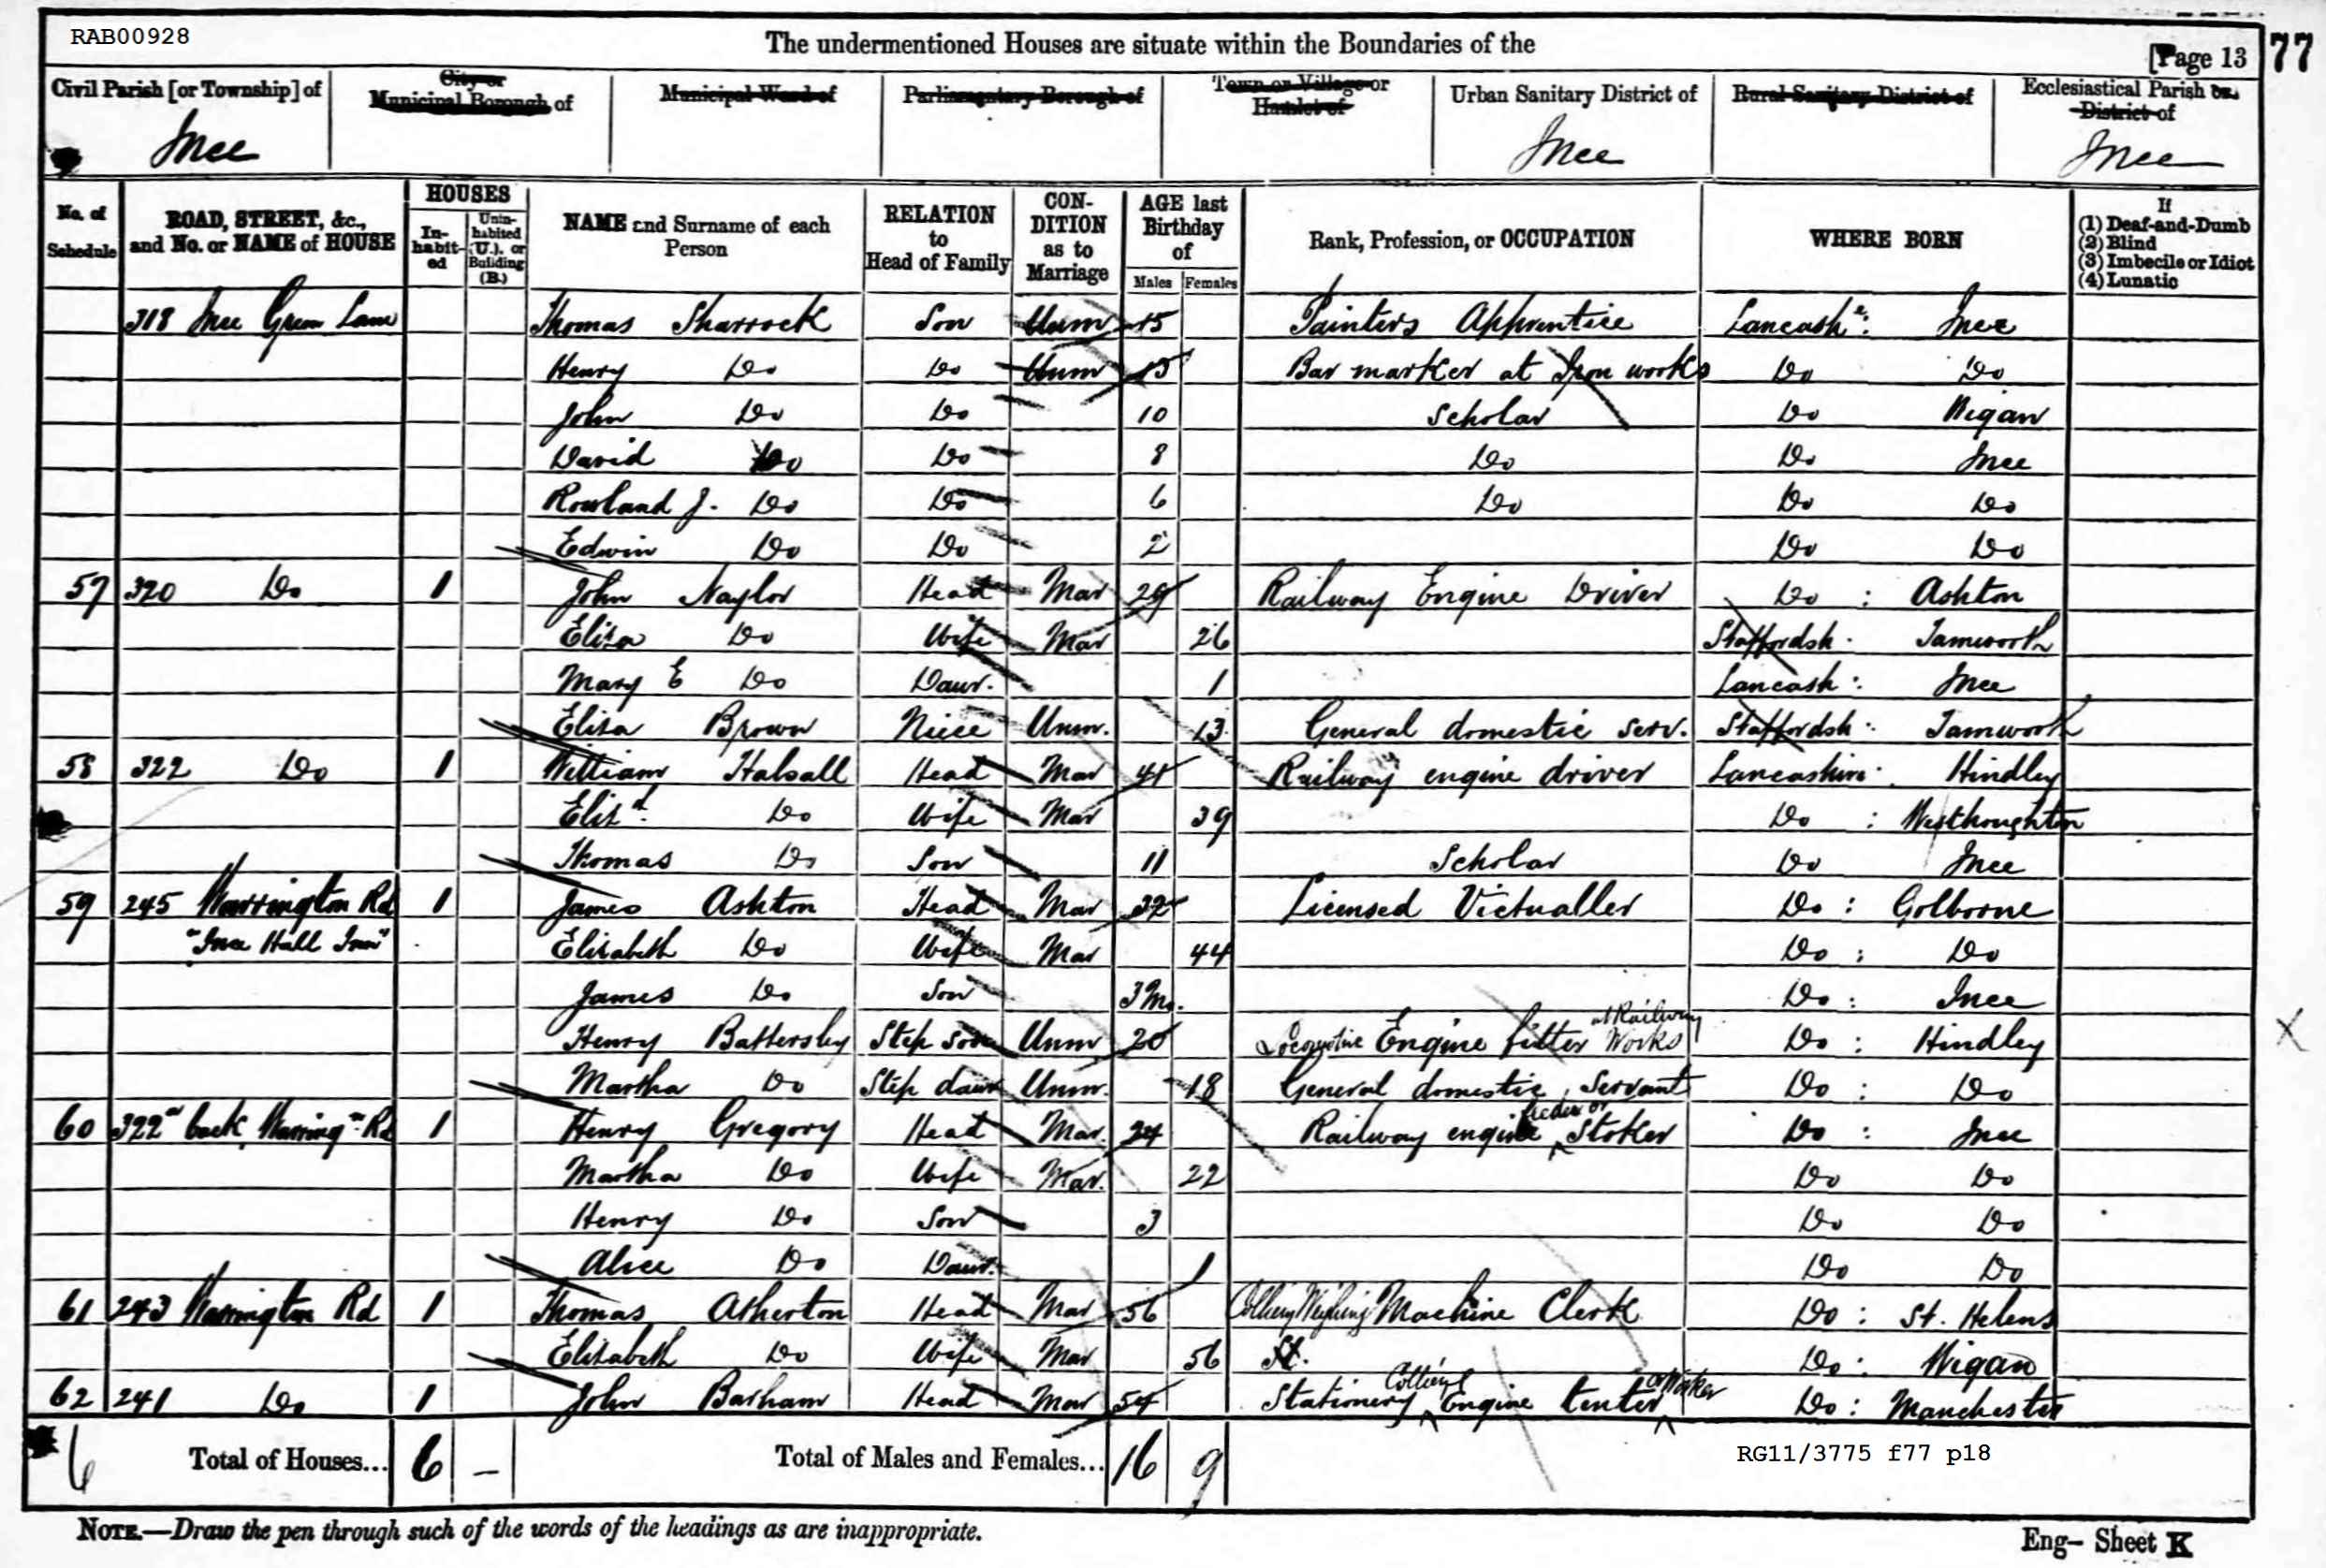 RAB00928
The undermentioned Houses are situate within the Boundaries of the
[Page 13
77
Civil Parish [or Township] of
City or Municipal Borough of
Municipal Ward of
Parliamentary Borough of
Town or Village or Hamlet of
Urban Sanitary District of
Rural Sanitary District of
Ecclesiastical Parish or District of
Ince
Ince
Ince
No. of Schedule
ROAD, STREET, &c., and No. or NAME of HOUSE
HOUSES
In-habit-ed
Unin-habited (U.), or Building (B.)
NAME and Surname of each Person
RELATION to Head of Family
CON-DITION as to Marriage
AGE last Birthday of
Males Females
Rank, Profession, or OCCUPATION
WHERE BORN
If
(1) Deaf-and-Dumb
(2) Blind
(3) Imbecile or Idiot
(4) Lunatic
318 Ince Green Lane Thomas Sharrock Son Unm 15 Painters Apprentice Lancashe: Ince
Henry Do Do Unm 15 Bar marker at Iron works Do Do
John Do Do 10 Scholar Do Wigan
David Do Do 8 Do Do Ince
Rowland J. Do Do 6 Do Do Do
Edwin Do Do 2 Do Do
57 320 Do 1 John Naylor Head Mar 29 Railway Engine Driver Do : Ashton
Eliza Do Wife Mar 26 Staffordsh. Tamworth
Mary E Do Daur. 1 Lancash: Ince
Eliza Brown Niece Unm. 13 General domestic serv. Staffordsh: Tamworth
58 322 Do 1 William Halsall Head Mar 41 Railway engine driver Lancashire. Hindley
Elizh. Do Wife Mar 39 Do : Westhoughton
Thomas Do Son 11 Scholar Do Ince
59 245 Warrington Rd 1 James Ashton Head Mar 32 Licensed Victualler Do : Golborne
"Ince Hall Inn" Elizabeth Do Wife Mar 44 Do : Do
James Do Son 3Mo. Do : Ince
Henry Battersby Step son Unm 20 Locomotive Engine fitter at Railway Works Do : Hindley
Martha Do Step daur Unm. 18 General domestic Servant Do : Do
60 322a back Warringn Rd 1 Henry Gregory Head Mar. 24 Railway engine feeder or Stoker Do : Ince
Martha Do Wife Mar. 22 Do Do
Henry Do Son 3 Do Do
Alice Do Daur. 1 Do Do
61 243 Warrington Rd 1 Thomas Atherton Head Mar 56 Colliery Weighing Machine Clerk Do : St. Helens
Elizabeth Do Wife Mar 56 St. Do : Wigan
62 241 Do 1 John Barham Head Mar 54 Stationery Colliery Engine tenter or Worker Do : Manchester
6 Total of Houses... 6 – Total of Males and Females... 16 9
RG11/3775 f77 p18
NOTE.—Draw the pen through such of the words of the headings as are inappropriate.
Eng– Sheet K
X